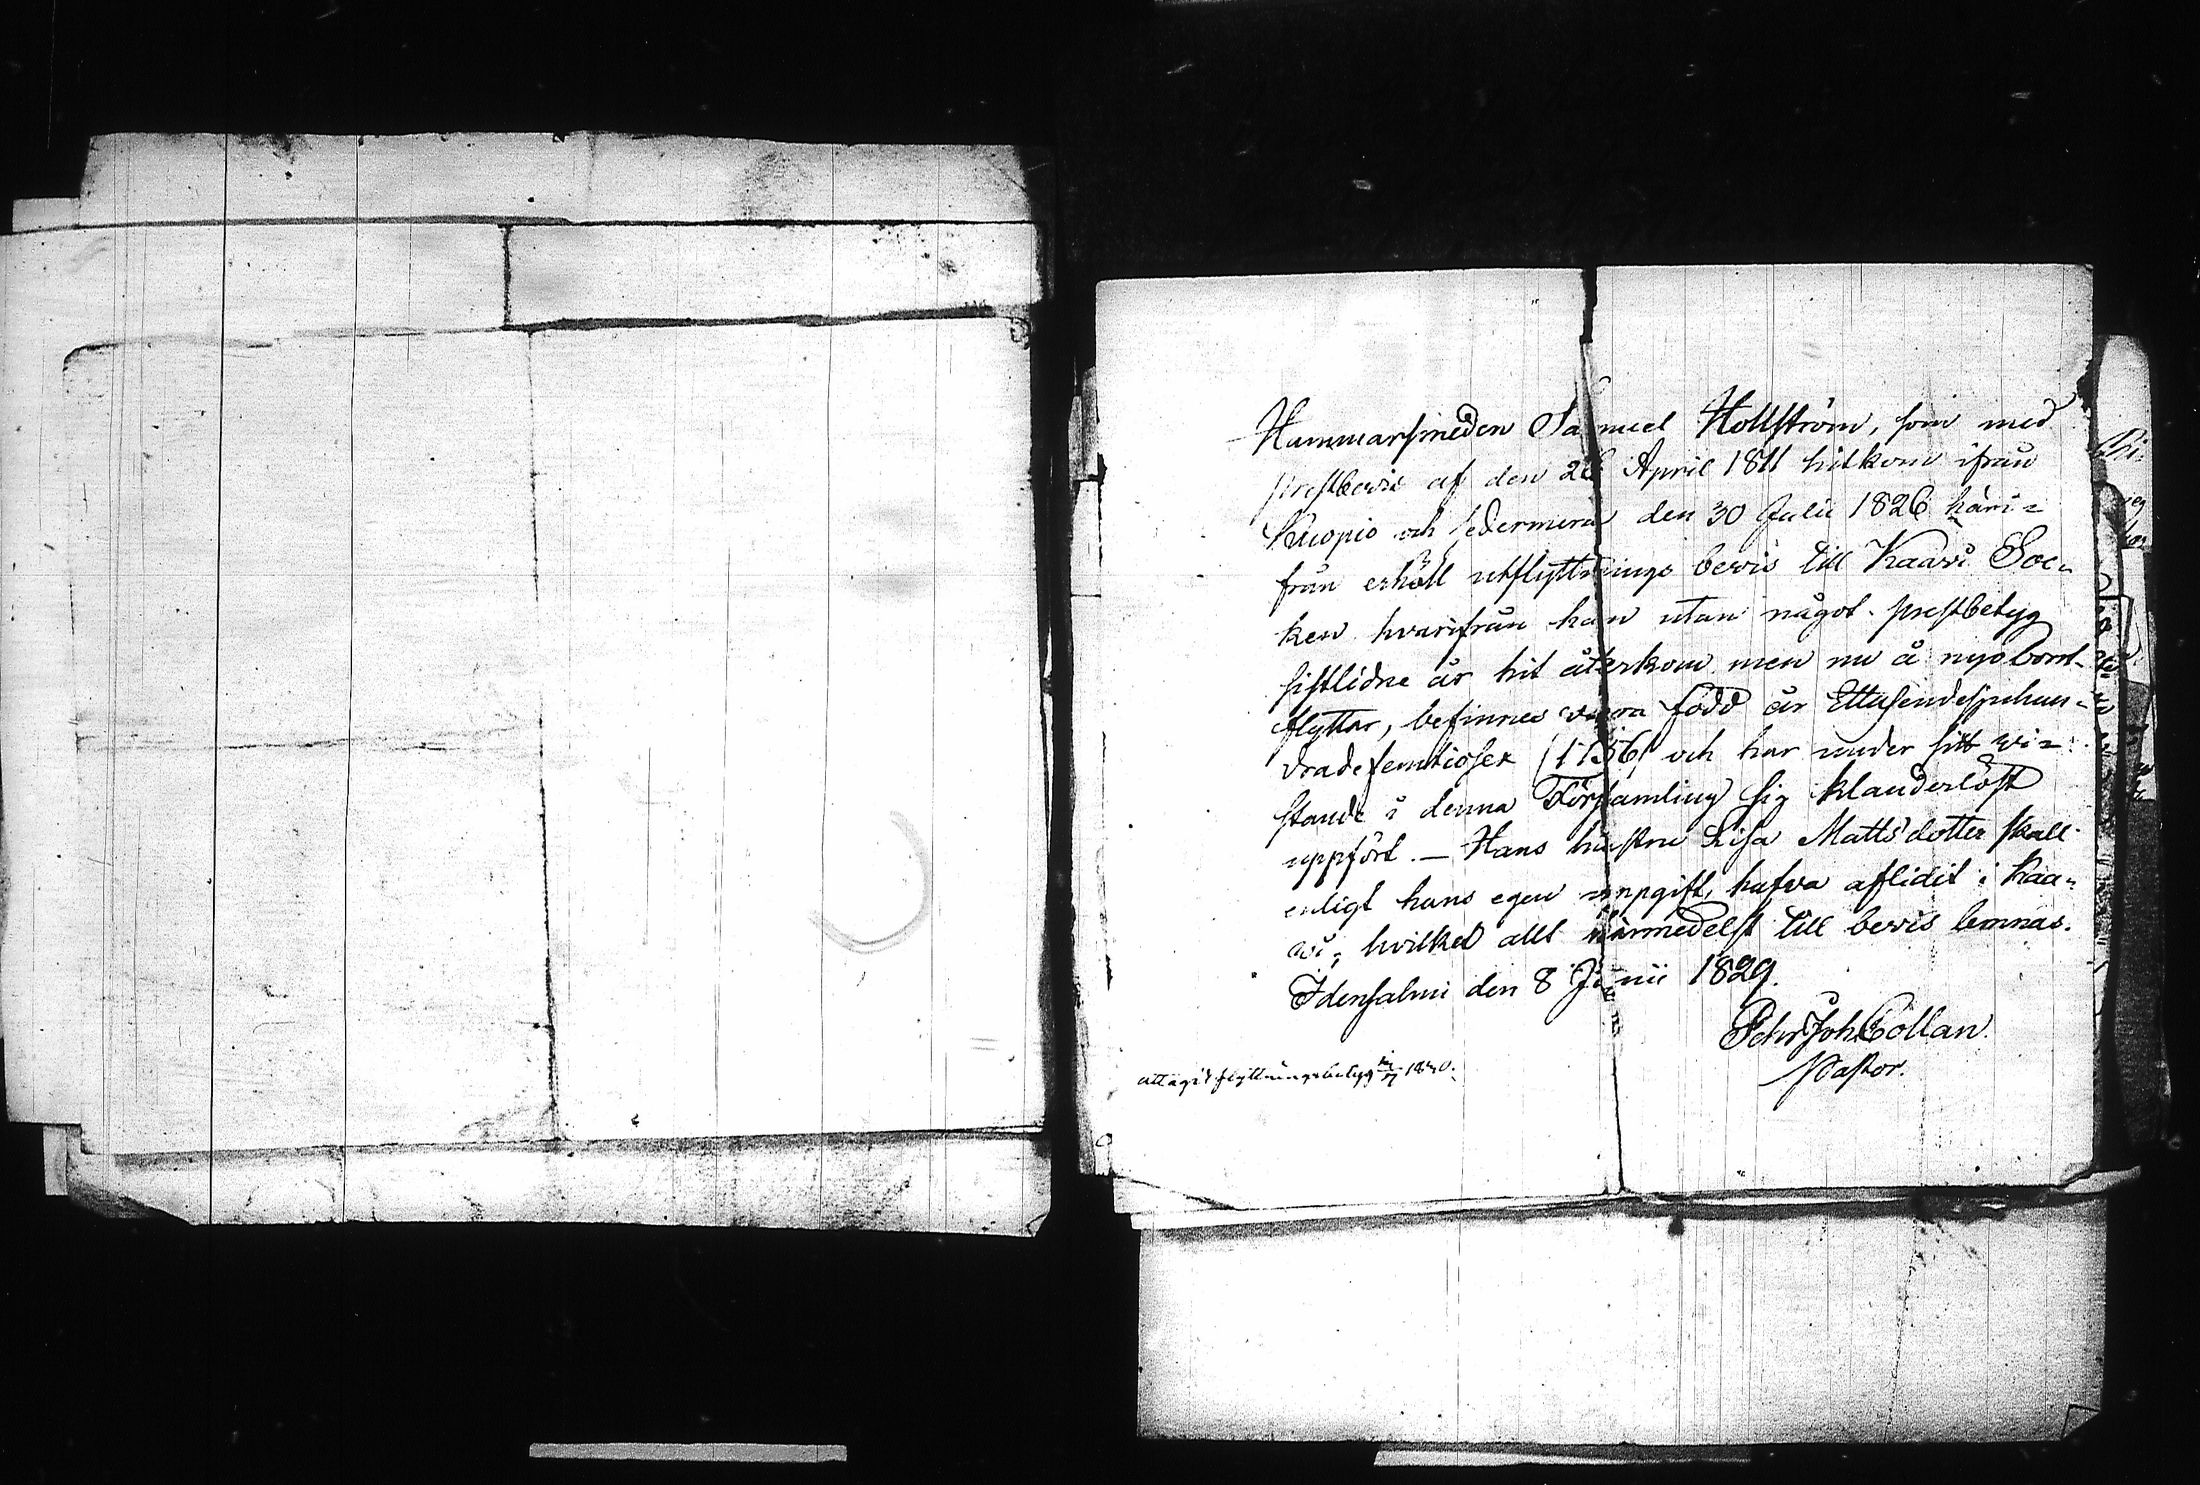 Hammarsmeden Samuel Hollström, som med
prestbevis af den 26 April 1811 hitkom ifrån
Kuopio och sedermera den 30 Julii 1826 häri-
från erhöll utflyttnings bevis till Kaavi Soc-
ken hvarifrån han utan något prestbetyg
sistlidne år hit återkom men nu å nyo bort-
flyttar, befinnes vara född år Ettusendesjuhun-
dradefemtiosex (1756) och har under sitt wi-
stande i denna Församling sig klanderlöst
uppfört. — Hans hustru Lisa Mattsdotter skall
enligt hans egen uppgift, hafva aflidit i Kaa-
vi, hvilket allt härmedelst till bevis lemnas.
Idensalmi den 8 Junii 1829.
Pehr Joh Collan
Pastor.
flyttningsbetyg 1830.